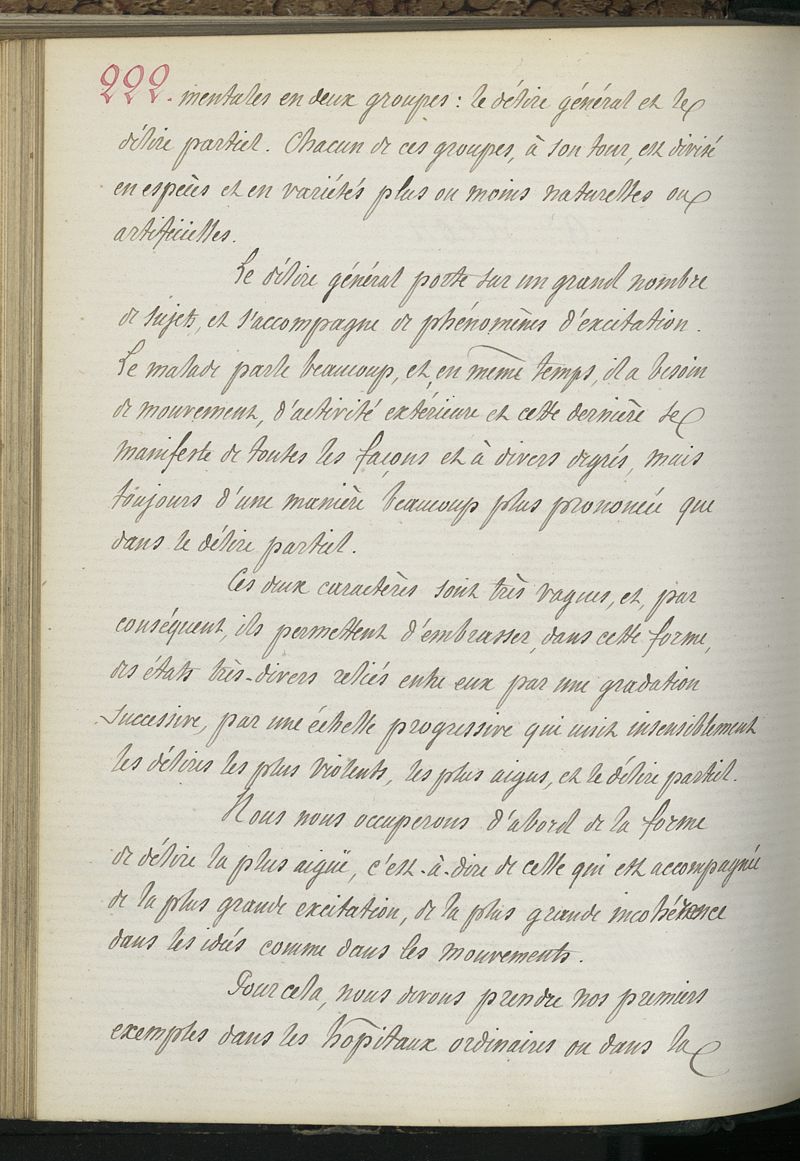 222. mentales en deux groupes : le délire général et le
délire partiel. Chacun de ces groupes, à son tour, est divisé
en espèces et en variétés plus ou moins naturelles ou
artificielles.
Le délire général porte sur un grand nombre
de sujets, et s'accompagne de phénomènes d'excitation.
Le malade parle beaucoup, et, en même temps, il a besoin
de mouvement, d'activité extérieure et cette dernière se
manifeste de toutes les façons et à divers degrés, mais
toujours d'une manière beaucoup plus prononcée que
dans le délire partiel.
Ces deux caractères sont très vagues, et, par
conséquent, ils permettent d'embrasser, dans cette forme,
des états très-divers reliés entre eux par une gradation
successive, par une échelle progressive qui unit insensiblement
les délires les plus violents, les plus aigus, et le délire partiel.
Nous nous occuperons d'abord de la forme
de délire la plus aigüe, c'est-à-dire de celle qui est accompagnée
de la plus grande excitation, de la plus grande incohérence
dans les idées comme dans les mouvements.
Pour cela, nous devons prendre nos premiers
exemples dans les hôpitaux ordinaires ou dans la